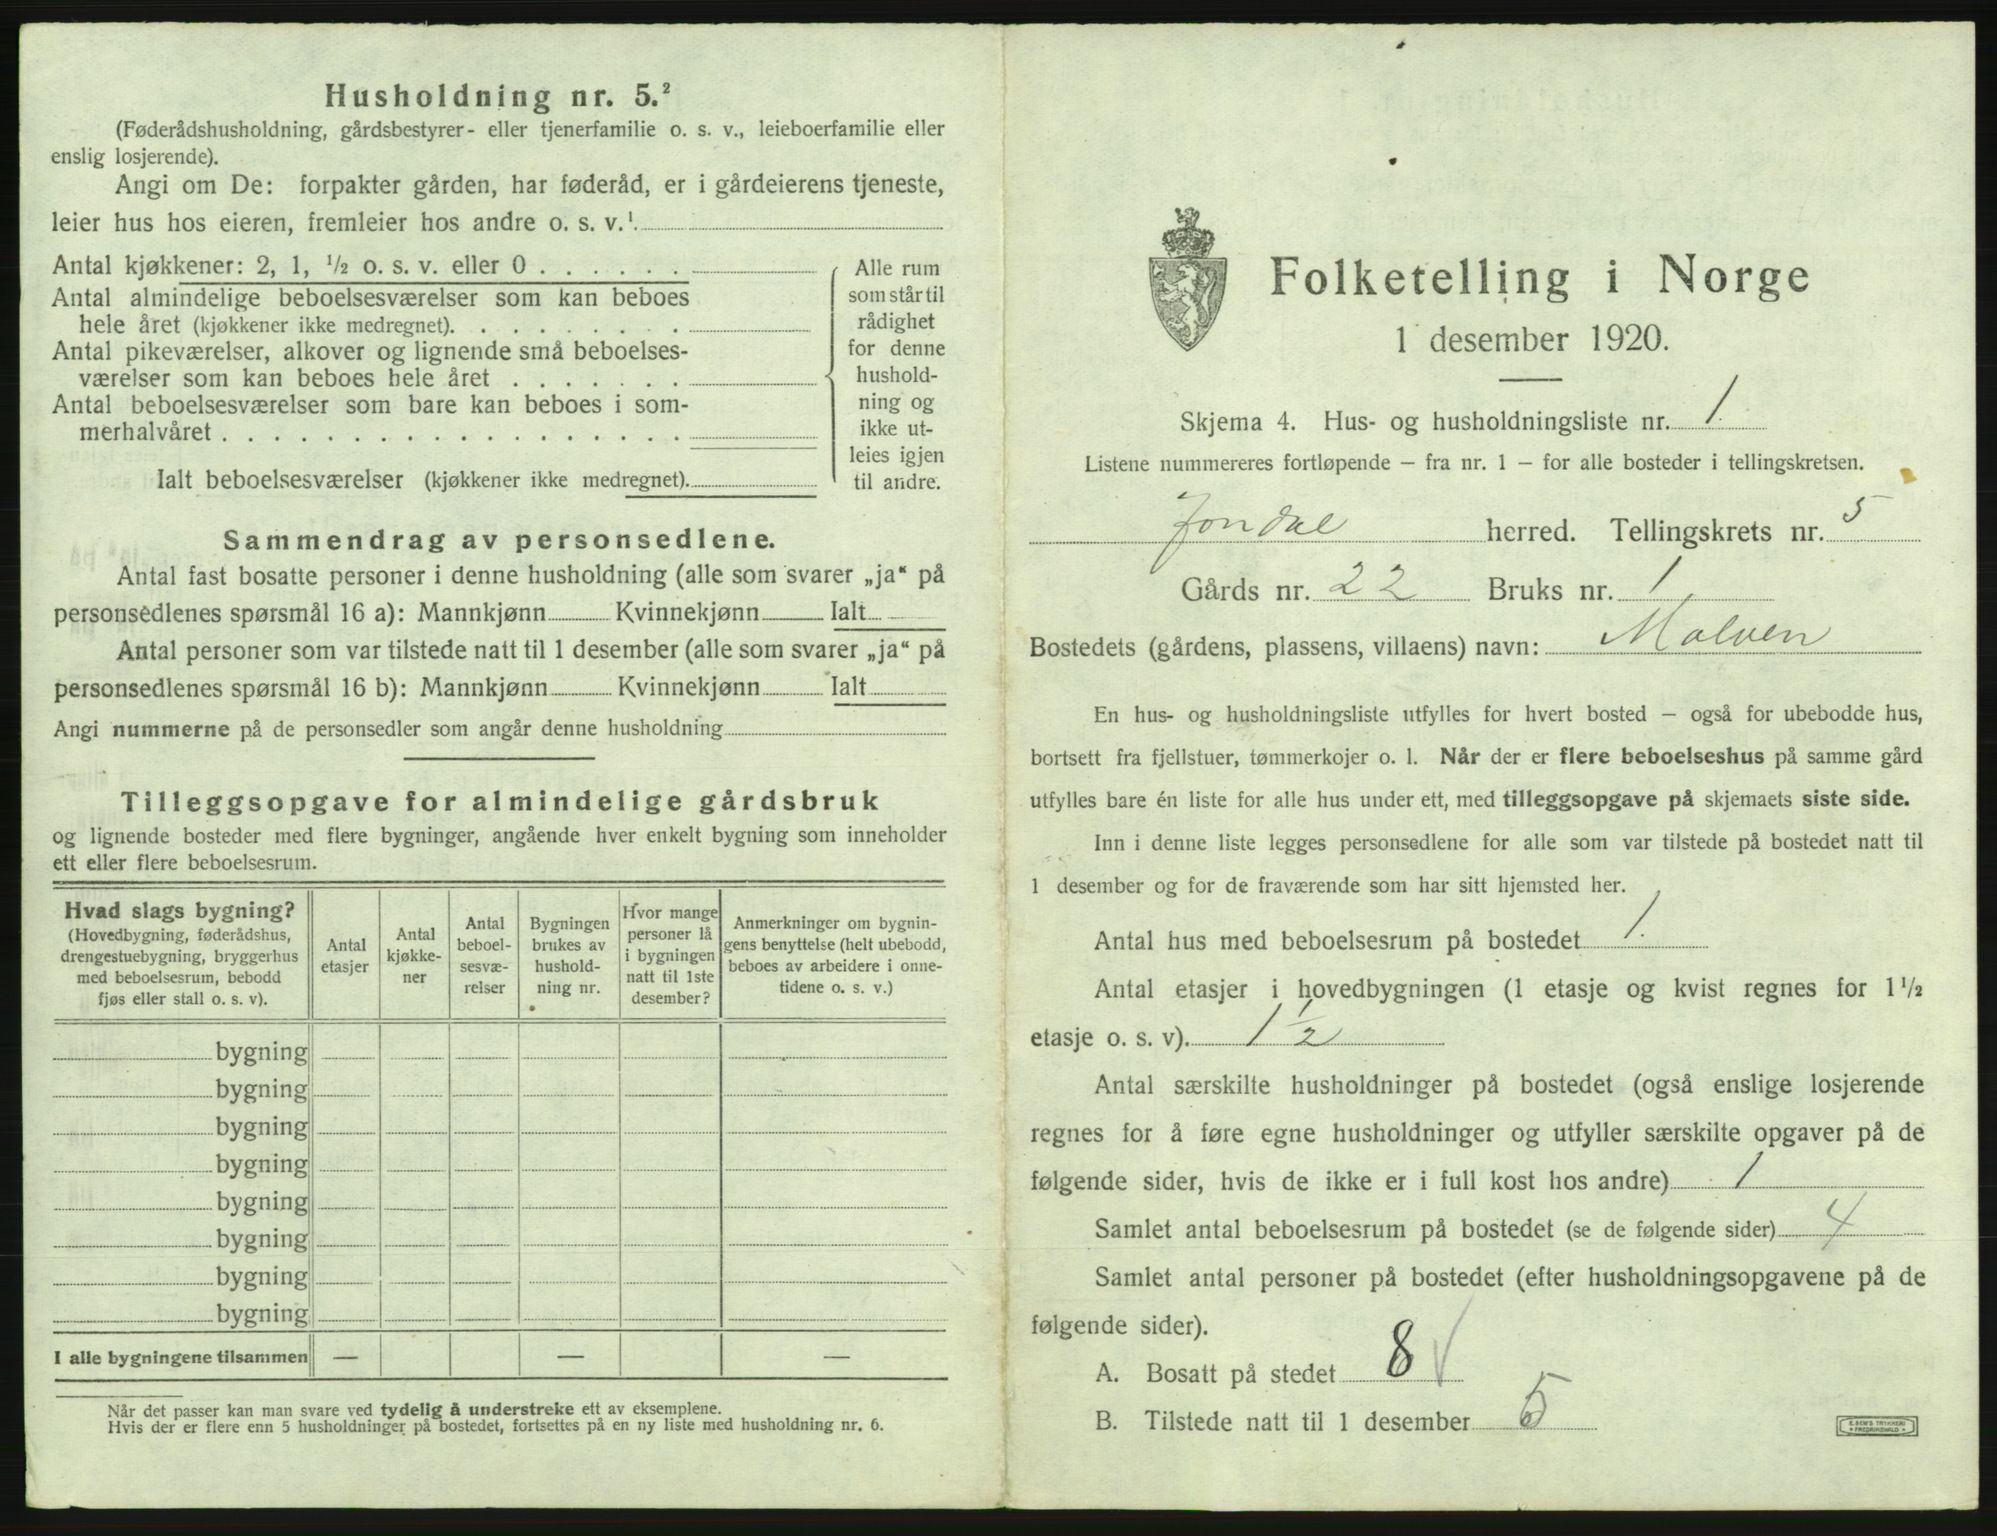 Husholdning nr. 5.²
(Føderådshusholdning, gårdsbestyrer- eller tjenerfamilie o. s. v., leieboerfamilie eller
enslig losjerende).
Angi om De: forpakter gården, har føderåd, er i gårdeierens tjeneste,
leier hus hos eieren, fremleier hos andre o. s. v.¹
Antal kjøkkener: 2, 1, ½ o. s. v. eller 0 . . . . . .
Antal almindelige beboelsesværelser som kan beboes
hele året (kjøkkener ikke medregnet). . . . . . . . .
Antal pikeværelser, alkover og lignende små beboelses-
værelser som kan beboes hele året . . . . . . .
Antal beboelsesværelser som bare kan beboes i som-
merhalvåret . . . . . . . . . . . . . . . . . .
Ialt beboelsesværelser (kjøkkener ikke medregnet).
Alle rum
som står til
rådighet
for denne
hushold-
ning og
ikke ut-
leies igjen
til andre.
Sammendrag av personsedlene.
Antal fast bosatte personer i denne husholdning (alle som svarer „ja“ på
personsedlenes spørsmål 16 a): Mannkjønn Kvinnekjønn Ialt
Antal personer som var tilstede natt til 1 desember (alle som svarer „ja“ på
personsedlenes spørsmål 16 b): Mannkjønn Kvinnekjønn Ialt
Angi nummerne på de personsedler som angår denne husholdning
Tilleggsopgave for almindelige gårdsbruk
og lignende bosteder med flere bygninger, angående hver enkelt bygning som inneholder
ett eller flere beboelsesrum.
Hvad slags bygning?
(Hovedbygning, føderådshus,
drengestuebygning, bryggerhus
med beboelsesrum, bebodd
fjøs eller stall o. s. v).
Antal
etasjer
Antal
kjøkke-
ner
Antal
beboel-
sesvæ-
relser
Bygningen
brukes av
hushold-
ning nr.
Hvor mange
personer lå
i bygningen
natt til 1ste
desember?
Anmerkninger om bygnin-
gens benyttelse (helt ubebodd,
beboes av arbeidere i onne-
tidene o. s. v.)
bygning
bygning
bygning
bygning
bygning
bygning
bygning
bygning
I alle bygningene tilsammen — — —
Når det passer kan man svare ved tydelig å understreke ett av eksemplene.
Hvis der er flere enn 5 husholdninger på bostedet, fortsettes på en ny liste med husholdning nr. 6.
Folketelling i Norge
1 desember 1920.
Skjema 4. Hus- og husholdningsliste nr. 1.
Listene nummereres fortløpende – fra nr. 1 – for alle bosteder i tellingskretsen.
Jondal herred. Tellingskrets nr. 5
Gårds nr. 22 Bruks nr. 1
Bostedets (gårdens, plassens, villaens) navn: Malven
En hus- og husholdningsliste utfylles for hvert bosted – også for ubebodde hus,
bortsett fra fjellstuer, tømmerkojer o. l. Når der er flere beboelseshus på samme gård
utfylles bare én liste for alle hus under ett, med tilleggsopgave på skjemaets siste side.
Inn i denne liste legges personsedlene for alle som var tilstede på bostedet natt til
1 desember og for de fraværende som har sitt hjemsted her.
Antal hus med beboelsesrum på bostedet 1.
Antal etasjer i hovedbygningen (1 etasje og kvist regnes for 1½
etasje o. s. v). 1½
Antal særskilte husholdninger på bostedet (også enslige losjerende
regnes for å føre egne husholdninger og utfyller særskilte opgaver på de
følgende sider, hvis de ikke er i full kost hos andre) 1
Samlet antal beboelsesrum på bostedet (se de følgende sider) 4
Samlet antal personer på bostedet (efter husholdningsopgavene på de
følgende sider).
A. Bosatt på stedet 8 √
B. Tilstede natt til 1 desember 5
E. SEM'S TRYKKERI
FREDRIKSHALD